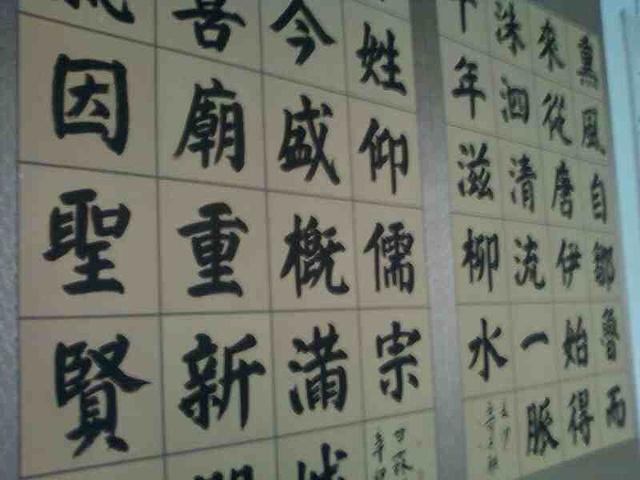 熏風自鄒魯而
來從唐伊始得
洙泗清流一脈
千年滋柳水
姓仰儒宗
今盛概滿城
喜廟重新
因聖賢